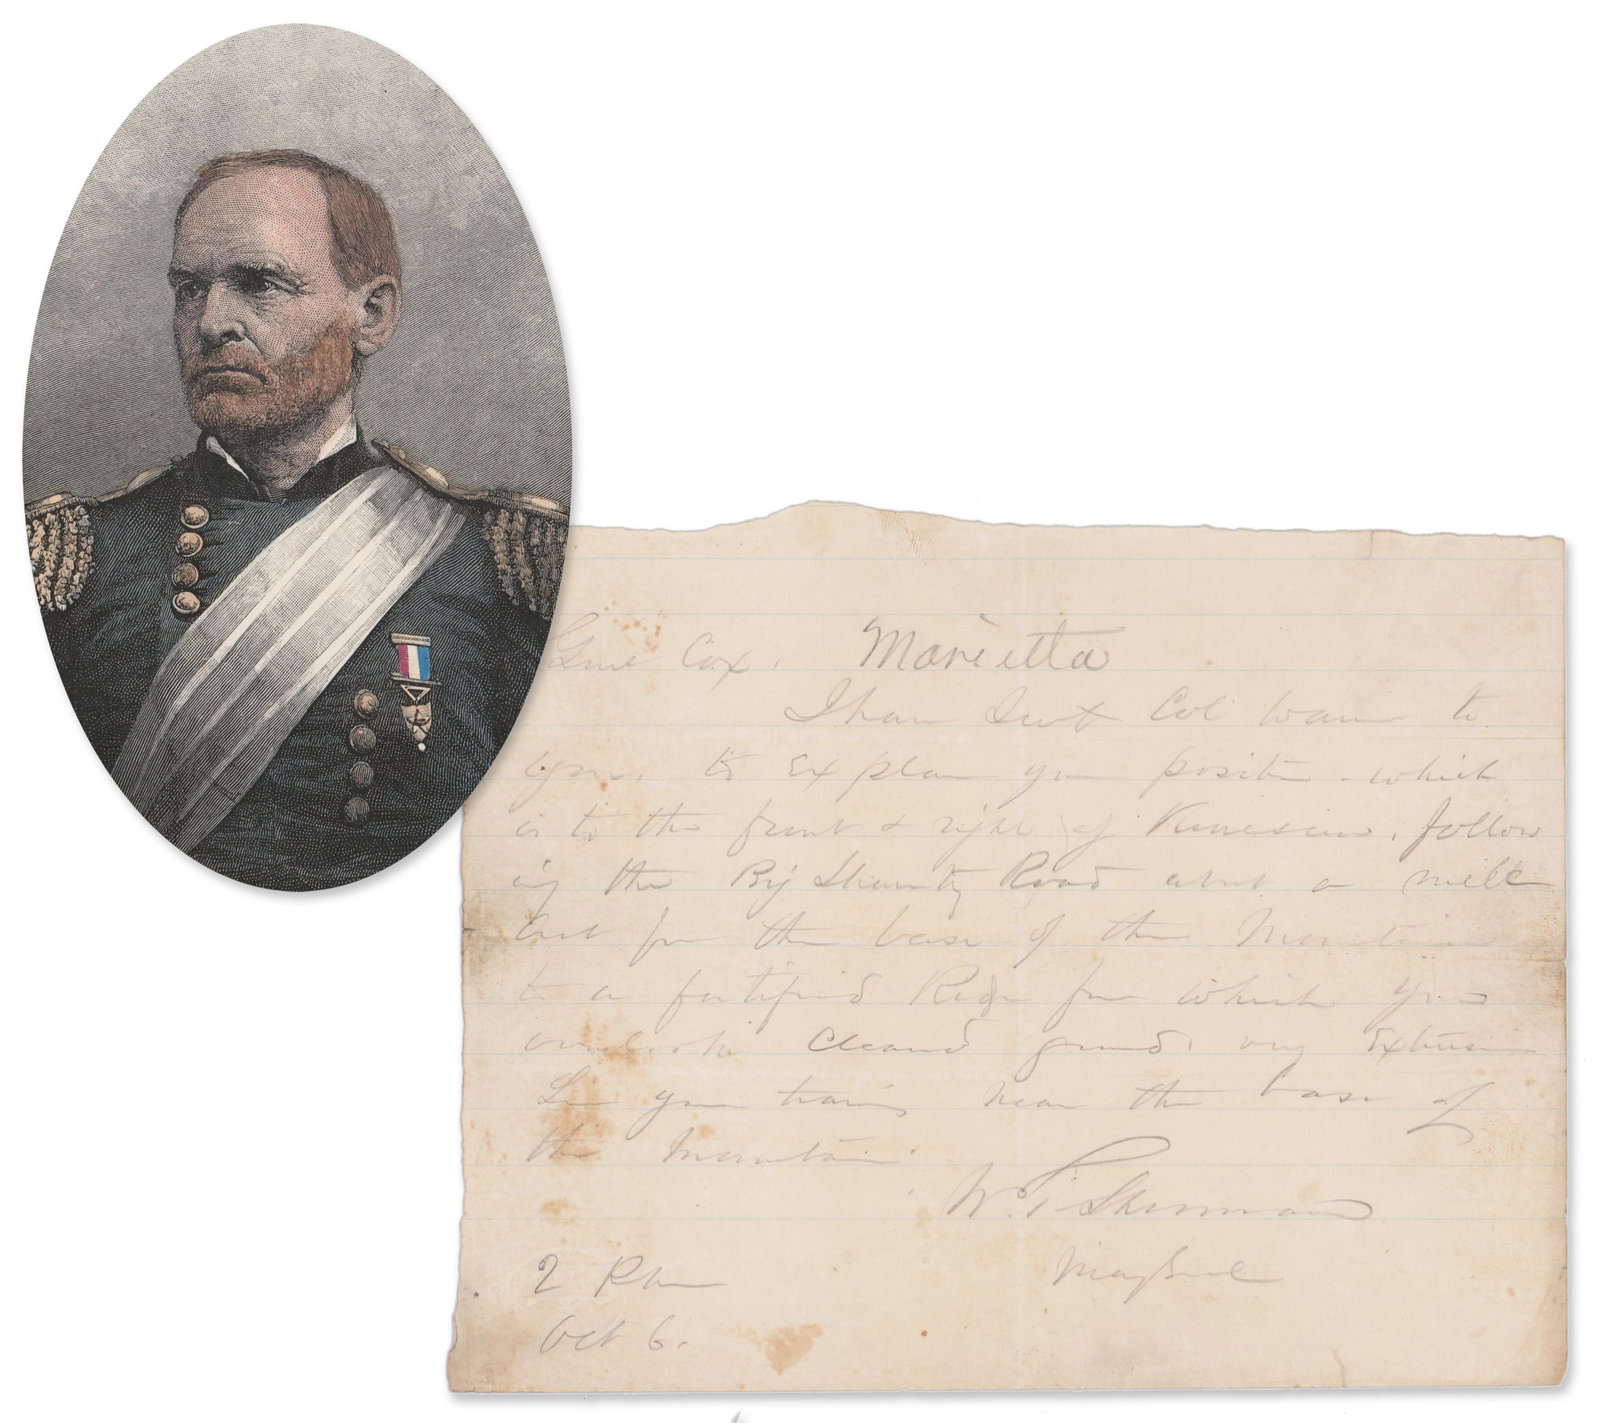 Genl Cox. Marietta
I have sent Col Warner to
you, to explain your position - which
is to the front & right of Kenesaw, follow
ing the Big Shanty Road about a mile
out from the base of the Mountain
to a fortified Ridge from which you
overlook cleared ground very extensive
your trains near the base of
the Mountain.
W. T. Sherman
Maj Genl
2 PM
Oct 6.